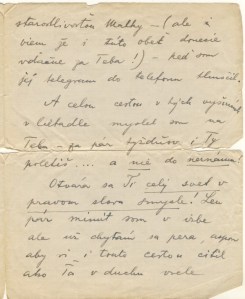 starostlivostou Matky – (ale a
viem že i túto obeť donesie
vďačne za Teba!) – keď som
jej telegram do telefonu hlásil.
A celou cestou v tých výšinách
v lietadle myslel som na
Teba – za pár týždňov i Ty
poletíš .... a nie do neznáma!
Otvára sa Ti celý svet v
pravom slova smysle! Len
pár minút som v izbe
ale už chytám sa pera, aspoň
aby si i touto cestou cítil
ako Ťa v duchu vrele